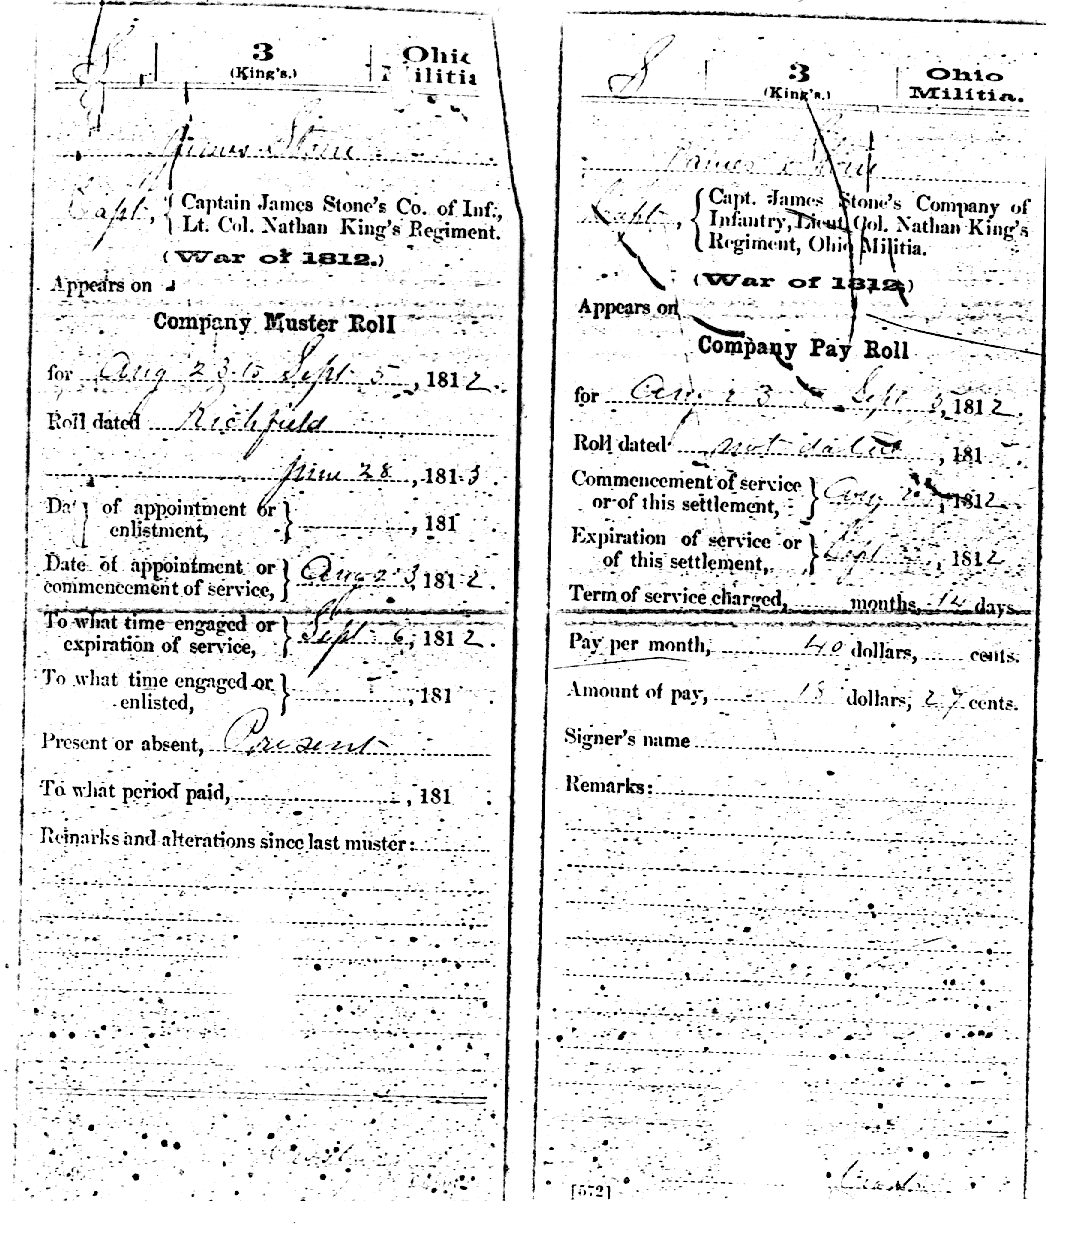 S 3 Ohio
(King's.) Militia
James Stone
Capt., { Captain James Stone's Co. of Inf.,
Lt. Col. Nathan King's Regiment.
(War of 1812.)
Appears on
Company Muster Roll
for Aug 23 to Sept 5, 1812.
Roll dated Richfield
June 28, 1813.
Da of appointment or
enlistment, } , 181 .
Date of appointment or
commencement of service, } Aug 23, 1812.
To what time engaged or
expiration of service, } Sept 6, 1812.
To what time engaged or
enlisted, } , 181 .
Present or absent, Present
To what period paid, , 181 .
Remarks and alterations since last muster:
S 3 Ohio
(King's.) Militia.
James Stone
Capt., { Capt. James Stone's Company of
Infantry, Lieut. Col. Nathan King's
Regiment, Ohio Militia.
(War of 1812.)
Appears on
Company Pay Roll
for Aug 23 Sept 5, 1812.
Roll dated not dated , 181 .
Commencement of service
or of this settlement, } Aug , 1812.
Expiration of service or
of this settlement, } Sept , 1812.
Term of service charged, months, 14 days.
Pay per month, 40 dollars, cents.
Amount of pay, 18 dollars, 27 cents.
Signer's name
Remarks:
[572]